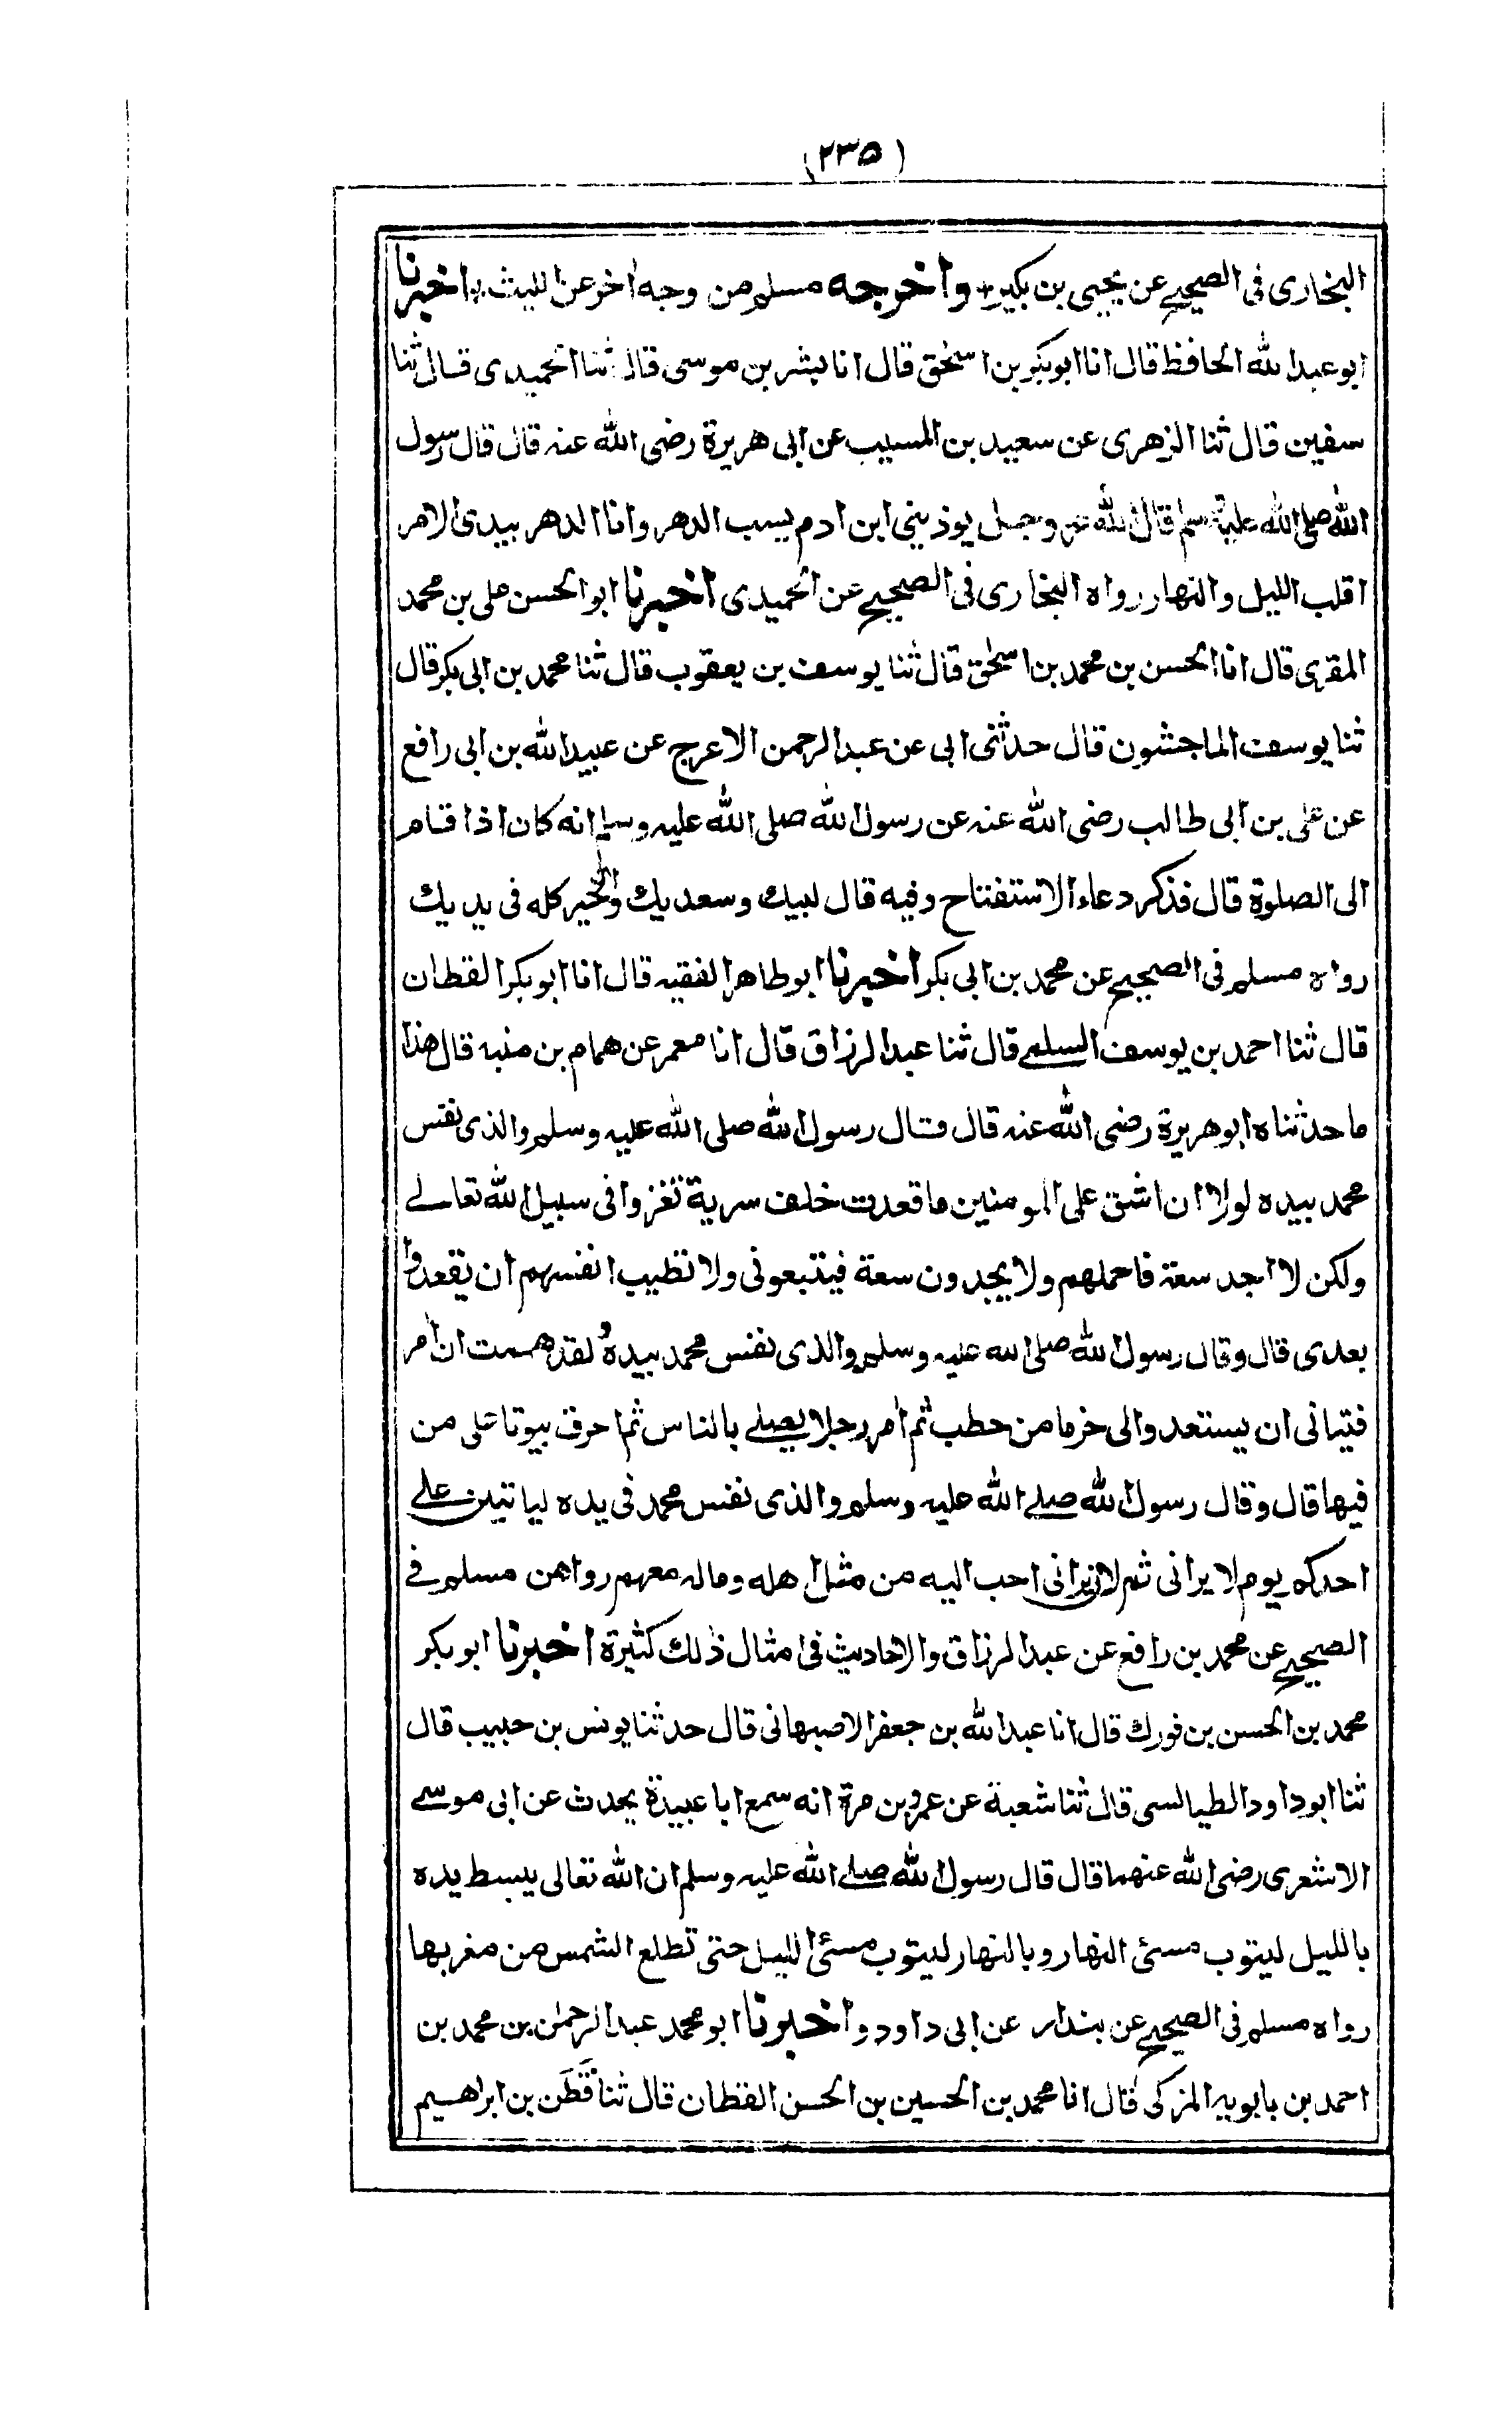 (۲۳۵)
البخارى فى الصحيح عن يحيى بن بكير واخرجه مسلم من وجه اٰخر عن الليث اخبرنا
ابو عبد الله الحافظ قال انا ابو بكر بن اسحٰق قال انا بشر بن موسى قال ثنا الحميدى قال ثنا
سفين قال ثنا الزهرى عن سعيد بن المسيب عن ابى هريرة رضى الله عنه قال قال رسول
الله صلى الله عليه وسلم قال الله عز وجل يوذينى ابن ادم يسب الدهر وانا الدهر بيدى الامر
اقلب الليل والنهار رواه البخارى فى الصحيح عن الحميدى اخبرنا ابو الحسن على بن محمد
المقرى قال انا الحسن بن محمد بن اسحٰق قال ثنا يوسف بن يعقوب قال ثنا محمد بن ابى بكر قال
ثنا يوسف الماجشون قال حدثنى ابى عن عبد الرحمن الاعرج عن عبيد الله بن ابى رافع
عن على بن ابى طالب رضى الله عنه عن رسول الله صلى الله عليه وسلم انه كان اذا قام
الى الصلوة قال فذكر دعاء الاستفتاح وفيه قال لبيك وسعديك والخير كله فى يديك
رواه مسلم فى الصحيح عن محمد بن ابى بكر اخبرنا ابو طاهر الفقيه قال انا ابو بكر القطان
قال ثنا احمد بن يوسف السلمے قال ثنا عبد الرزاق قال انا معمر عن همام بن منبه قال هذا
ما حدثناه ابو هريرة رضى الله عنه قال قال رسول الله صلى الله عليه وسلم والذى نفس
محمد بيده لولا ان اشق على المومنين ما قعدت خلف سرية تغزوا فى سبيل الله تعالے
ولكن لا اجد سعة فاحملهم ولا يجدون سعة فيتبعونى ولا تطيب انفسهم ان يقعدوا
بعدى قال وقال رسول الله صلى الله عليه وسلم والذى نفس محمد بيده لقد هممت ان اٰمر
فتيانى ان يستعدوا الى حزما من حطب ثم اٰمر رجلا يصلے بالناس ثم احرق بيوتا على من
فيها قال وقال رسول الله صلے الله عليه وسلم والذى نفس محمد فى يده لياتين علے
احدكم يوم لا يرانى ثم لان يرانى احب اليه من مثل اهله وماله معهم رواهن مسلم فے
الصحيح عن محمد بن رافع عن عبد الرزاق والاحاديث فى امثال ذٰلك كثيرة اخبرنا ابو بكر
محمد بن الحسن بن فورك قال انا عبد الله بن جعفر الاصبهانى قال حدثنا يونس بن حبيب قال
ثنا ابو داود الطيالسى قال ثنا شعبة عن عمرو بن مرة انه سمع ابا عبيدة يحدث عن ابى موسے
الاشعرى رضى الله عنهما قال قال رسول الله صلے الله عليه وسلم ان الله تعالى يبسط يده
بالليل ليتوب مسئ النهار وبالنهار ليتوب مسئ الليل حتى تطلع الشمس من مغربها
رواه مسلم فى الصحيح عن بندار عن ابى داود واخبرنا ابو محمد عبد الرحمٰن بن محمد بن
احمد بن بابويه المزكى قال انا محمد بن الحسين بن الحسن القطان قال ثنا قَطَن بن ابراهيم